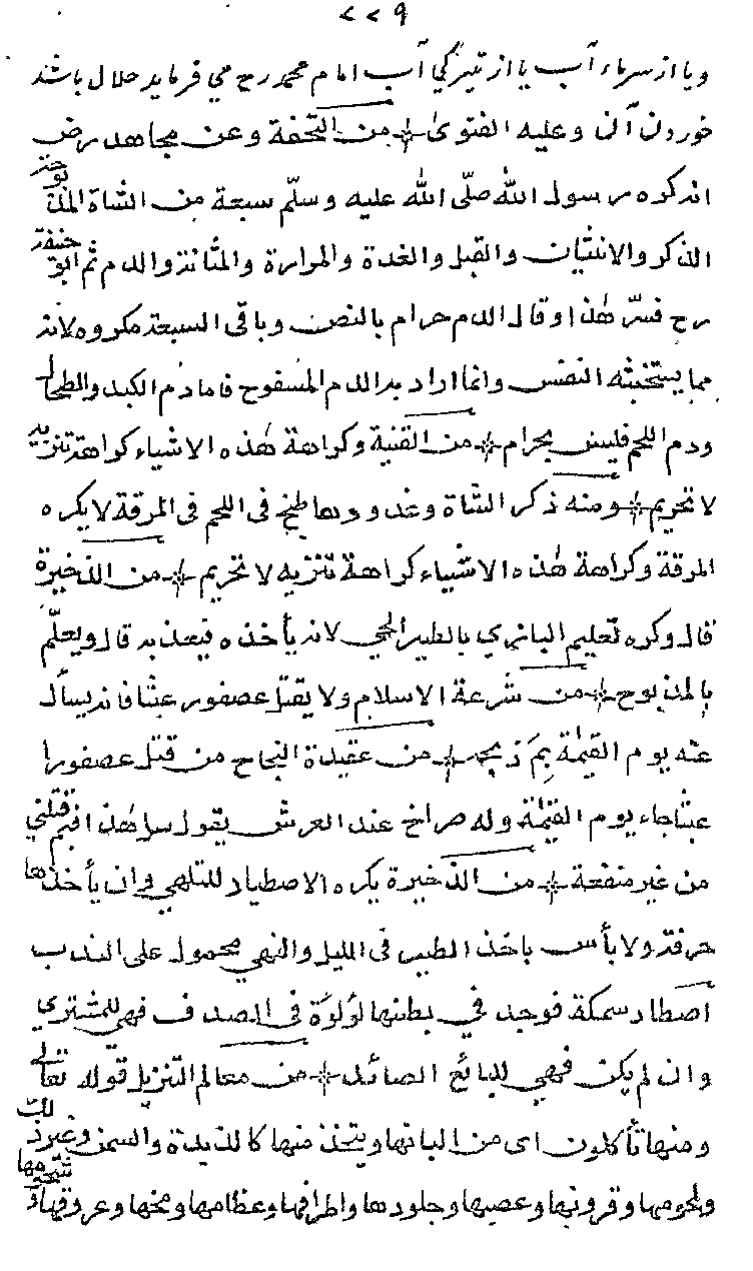 ٢٢٩
ويا از سرماء آب يا از تيركي آب امام محمد رح مي فرمايد حلال باشد
خوردن آن وعليه الفتوى من التحفة وعن مجاهد رض
انه كره رسول الله صلّى الله عليه وسلّم سبعة من الشاة المذبوحة
الذكر والانثيان والقبل والغدة والمرارة والمثانة والدم ثم ابو حنيفة
رح فسّر هٰذا وقال الدم حرام بالنص وباقى السبعة مكروه لانه
مما يستخبثه النفس وانما اراد به الدم المسفوح فاما دم الكبد والطحال
ودم اللحم فليس بحرام من القنية وكراهة هٰذه الاشياء كراهة تنزيه
لا تحريم ومنه ذكر الشاة وغدودها طبخ فى اللحم فى المرقة لا يكره
المرقة وكراهة هٰذه الاشياء كراهة تنزيه لا تحريم من الذخيرة
قال وكره تعليم البازي بالطير الحي لانه يأخذه فيعذبه قال ويعلّم
بالمذبوح من شرعة الاسلام ولا يقتل عصفور عبثا فانه يسأل
عنه يوم القيٰمة بِمَ ذبحه من عقيدة النجاح من قتل عصفورا
عبثا جاء يوم القيٰمة وله صراخ عند العرش يقول سل هٰذا فيم قتلني
من غير منفعة من الذخيرة يكره الاصطياد للتلهي وان يأخذها
حرفة ولا بأس باخذ الطير فى الليل والنهي محمول على الندب
اصطاد سمكة فوجد في بطنها لؤلؤة فى الصدف فهي للمشتري
وان لم يكن فهي للبائع الصائد من معالم التنزيل قوله تعالى
ومنها تأكلون اى من البانها ويتخذ منها كالزبدة والسمن وغير ذلك
ولحومها وقرونها وعصبها وجلودها واطرافها وعظامها ومخها وعروقها و شحومها